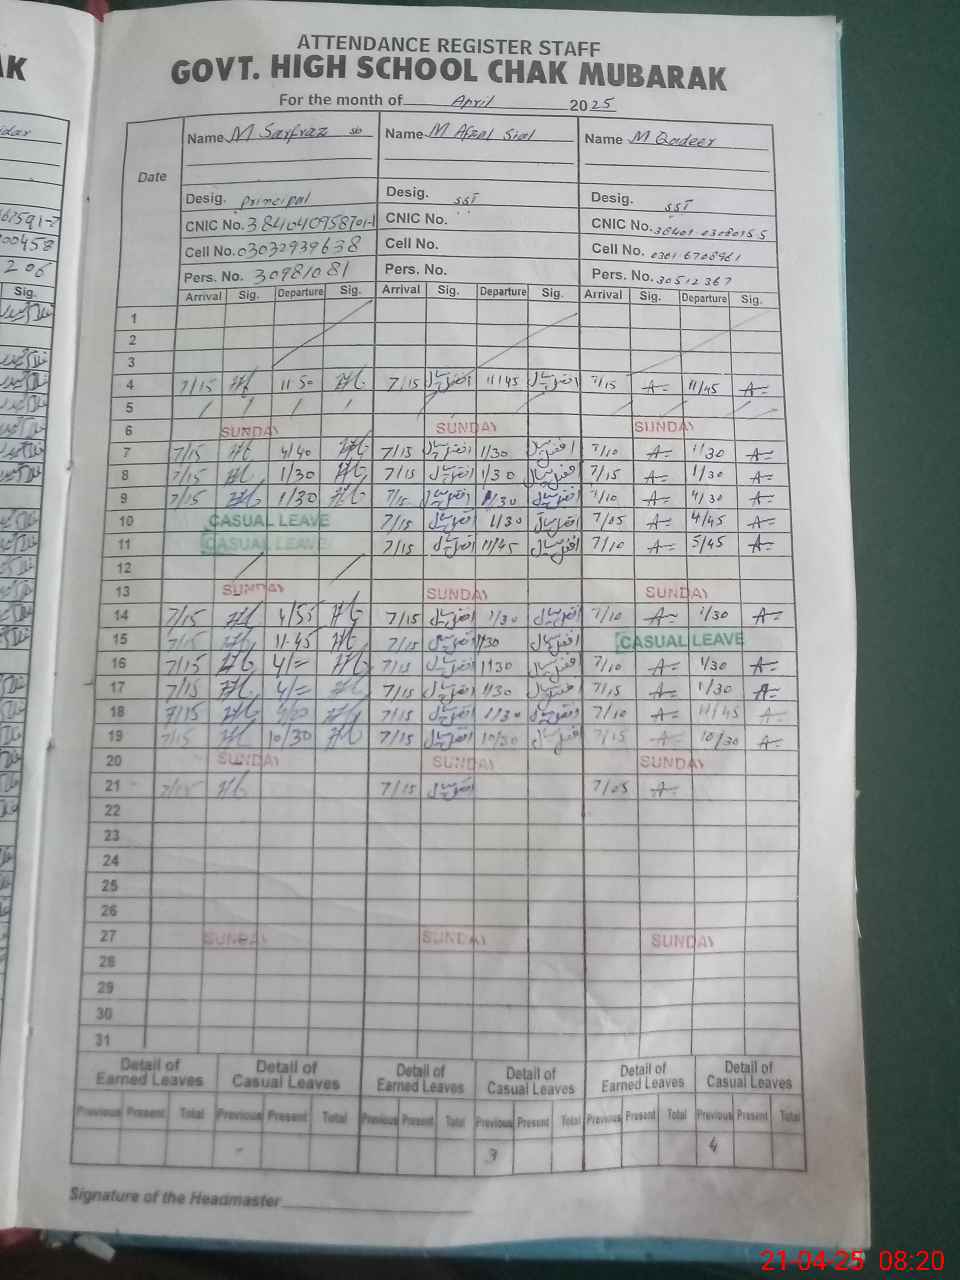 ATTENDANCE REGISTER STAFF
GOVT. HIGH SCHOOL CHAK MUBARAK
For the month of April 2025
Date
Name M Sarfraz sb Name M Afzal Sial Name M Qadeer
Desig. Principal Desig. SST Desig. SST
CNIC No. CNIC No. CNIC No.
Cell No. 03032939638 Cell No. Cell No. 0301 6708961
Pers. No. 30981081 Pers. No. Pers. No. 30512367
Arrival Sig. Departure Sig. Arrival Sig. Departure Sig. Arrival Sig. Departure Sig.
1
2
3
4 7/15 11 50 7/15 افضل سیال 11/45 افضل سیال 7/15 11/45
5
6 SUNDAY SUNDAY SUNDAY
7 7/15 4/40 7/15 افضل سیال 1/30 افضل سیال 7/10 1/30
8 7/15 1/30 7/15 افضل سیال 1/30 افضل سیال 7/15 1/30
9 7/15 1/30 7/15 افضل سیال 1/30 افضل سیال 7/10 4/30
10 CASUAL LEAVE 7/15 افضل سیال 1/30 افضل سیال 7/05 4/45
11 CASUAL LEAVE 7/15 افضل سیال 11/45 افضل سیال 7/10 5/45
12
13 SUNDAY SUNDAY SUNDAY
14 7/15 4/55 7/15 افضل سیال 1/30 افضل سیال 7/10 1/30
15 7/15 11.45 7/15 افضل سیال 1/30 افضل سیال CASUAL LEAVE
16 7/15 4/= 7/15 افضل سیال 1130 افضل سیال 7/10 1/30
17 7/15 4/= 7/15 افضل سیال 1/30 افضل سیال 7/15 1/30
18 7/15 7/15 افضل سیال 1/30 افضل سیال 7/10 11/45
19 7/15 10/30 7/15 افضل سیال 10/30 افضل سیال 7/15 10/30
20 SUNDAY SUNDAY SUNDAY
21 7/15 7/15 افضل سیال 7/05
22
23
24
25
26
27 SUNDAY SUNDAY SUNDAY
28
29
30
31
Detail of Earned Leaves Detail of Casual Leaves Detail of Earned Leaves Detail of Casual Leaves Detail of Earned Leaves Detail of Casual Leaves
Previous Present Total Previous Present Total Previous Present Total Previous Present Total Previous Present Total Previous Present Total
- 3 4
Signature of the Headmaster
21-04-25 08:20